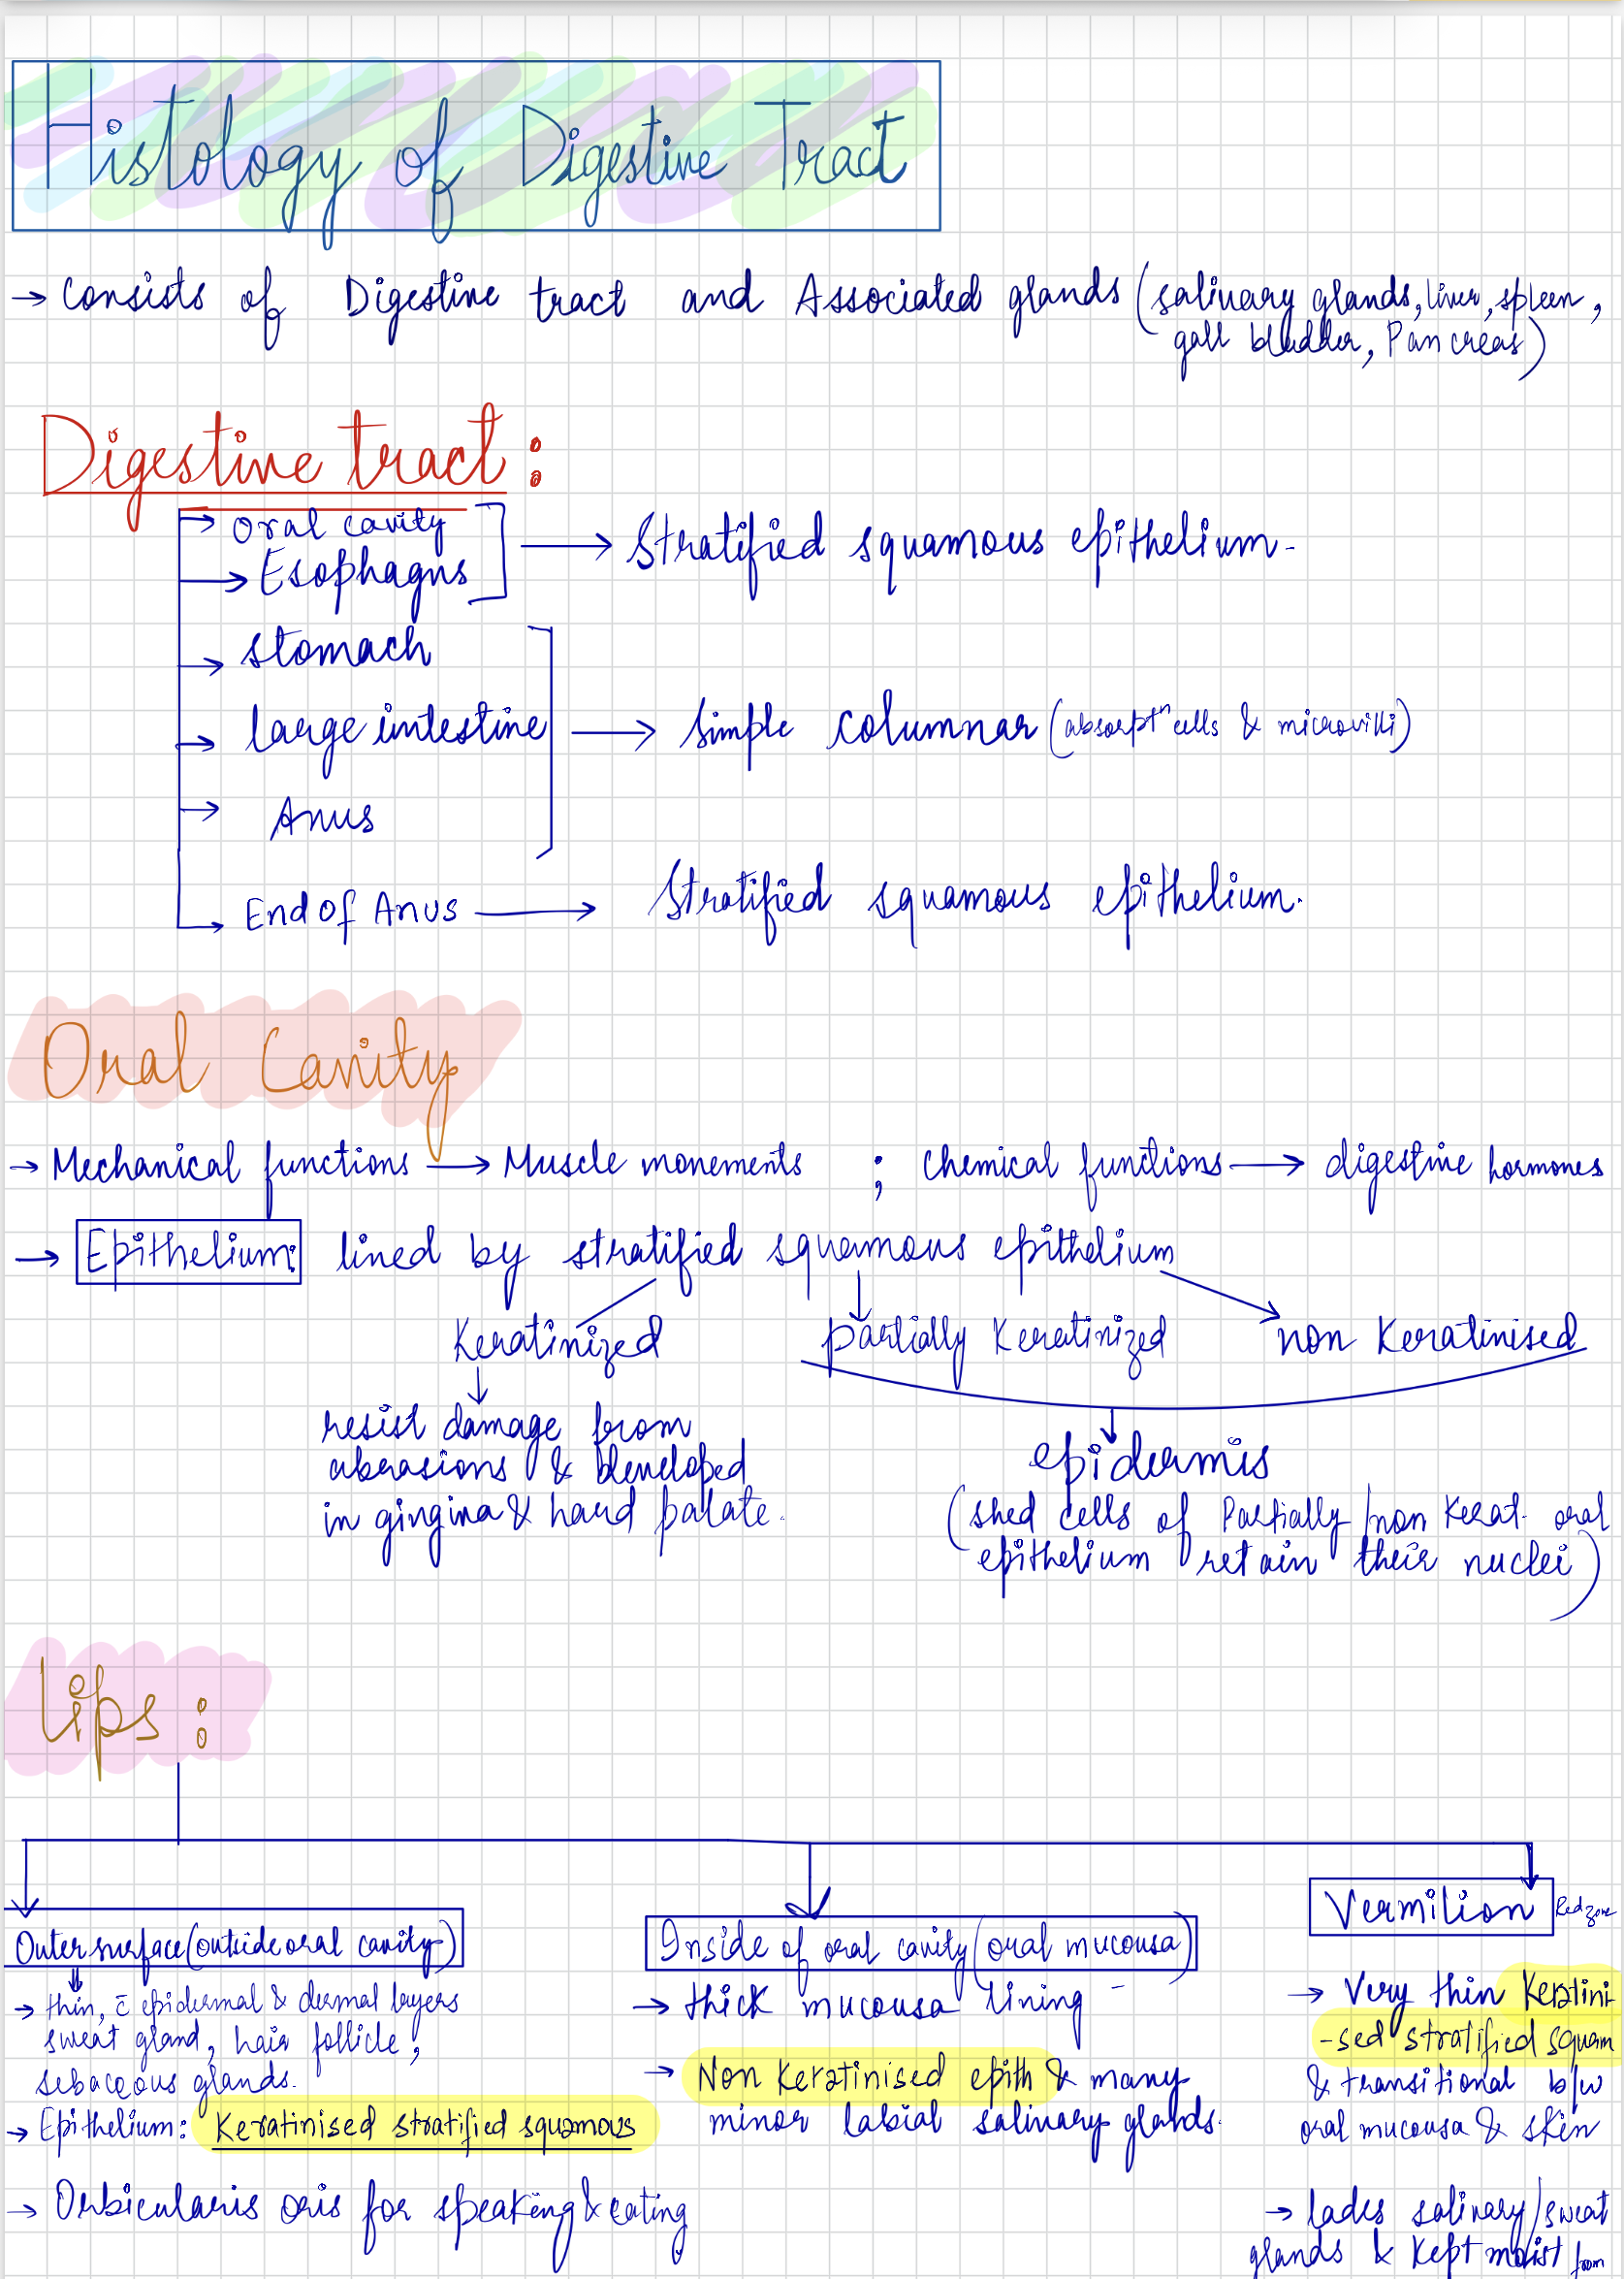 Histology of Digestive Tract
→ Consists of Digestive tract and Associated glands (salivary glands, liver, spleen,
gall bladder, Pancreas)
Digestive tract :
→ oral cavity
→ Esophagus
→ Stratified squamous epithelium.
→ stomach
→ large intestine
→ Simple columnar (absorptⁿ cells & microvilli)
→ Anus
→ End of Anus → Stratified squamous epithelium.
Oral Cavity
→ Mechanical functions → Muscle movements ; chemical functions → digestive hormones
→ Epithelium: lined by stratified squamous epithelium
Keratinized partially Keratinized non Keratinised
resist damage from
abrasions & developed
in gingiva & hard palate.
epidermis
(shed cells of Partially/non Kerat. oral
epithelium retain their nuclei)
lips :
Outer surface (outside oral cavity)
→ thin, c̄ epidermal & dermal layers
sweat gland, hair follicle,
sebaceous glands.
→ Epithelium: Keratinised stratified squamous
→ Orbicularis oris for speaking & eating
Inside of oral cavity (oral mucousa)
→ thick mucousa lining
→ Non Keratinised epith & many
minor labial salivary glands.
Vermilion Red zone
→ Very thin Keratini
-sed stratified squam
& transitional b/w
oral mucousa & skin
→ lacks salivary/sweat
glands & Kept moist from